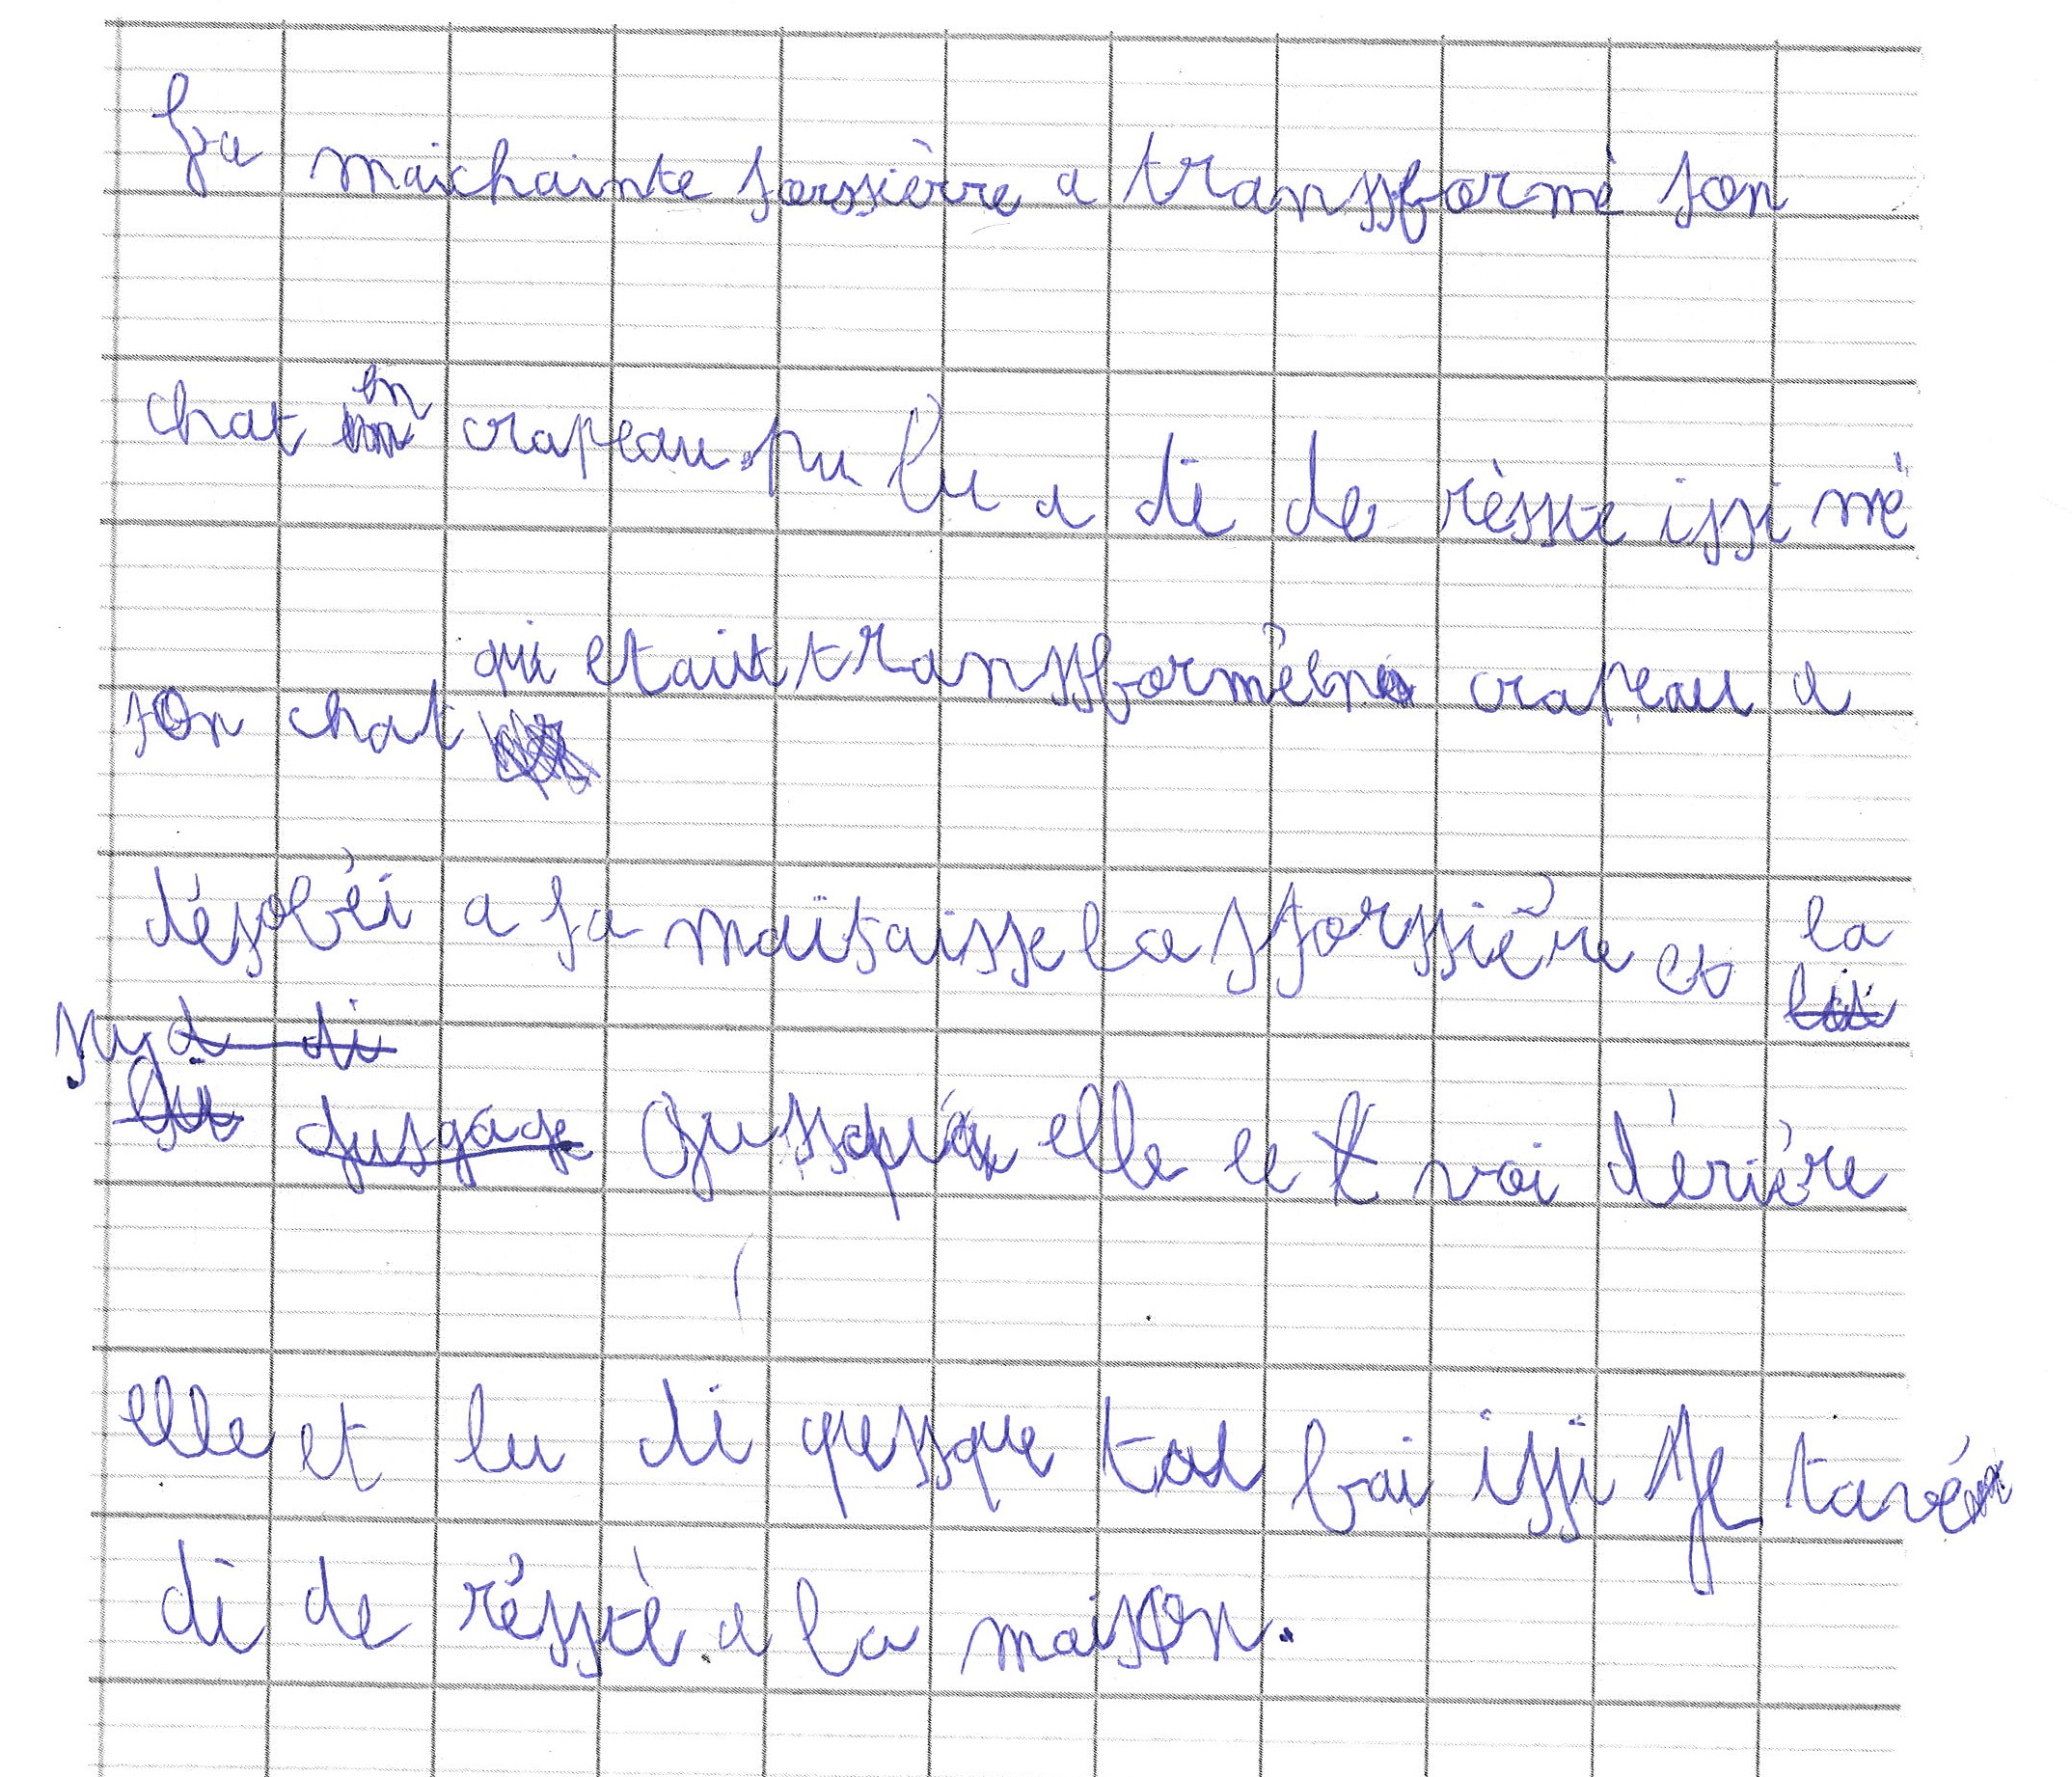 La maichainte sorssièrre a transsformé son
chat en crapeau. pu lu a di de rèsste issi mé
son chat qui etait transsformé en crapeau a
désobéi a sa maitaisse la ssorssière et la
suy di
jusgage Jussqua elle ce t voi dérière
elle et lu di qesque tai fai issi Je tavé
di de résstè a la maison.